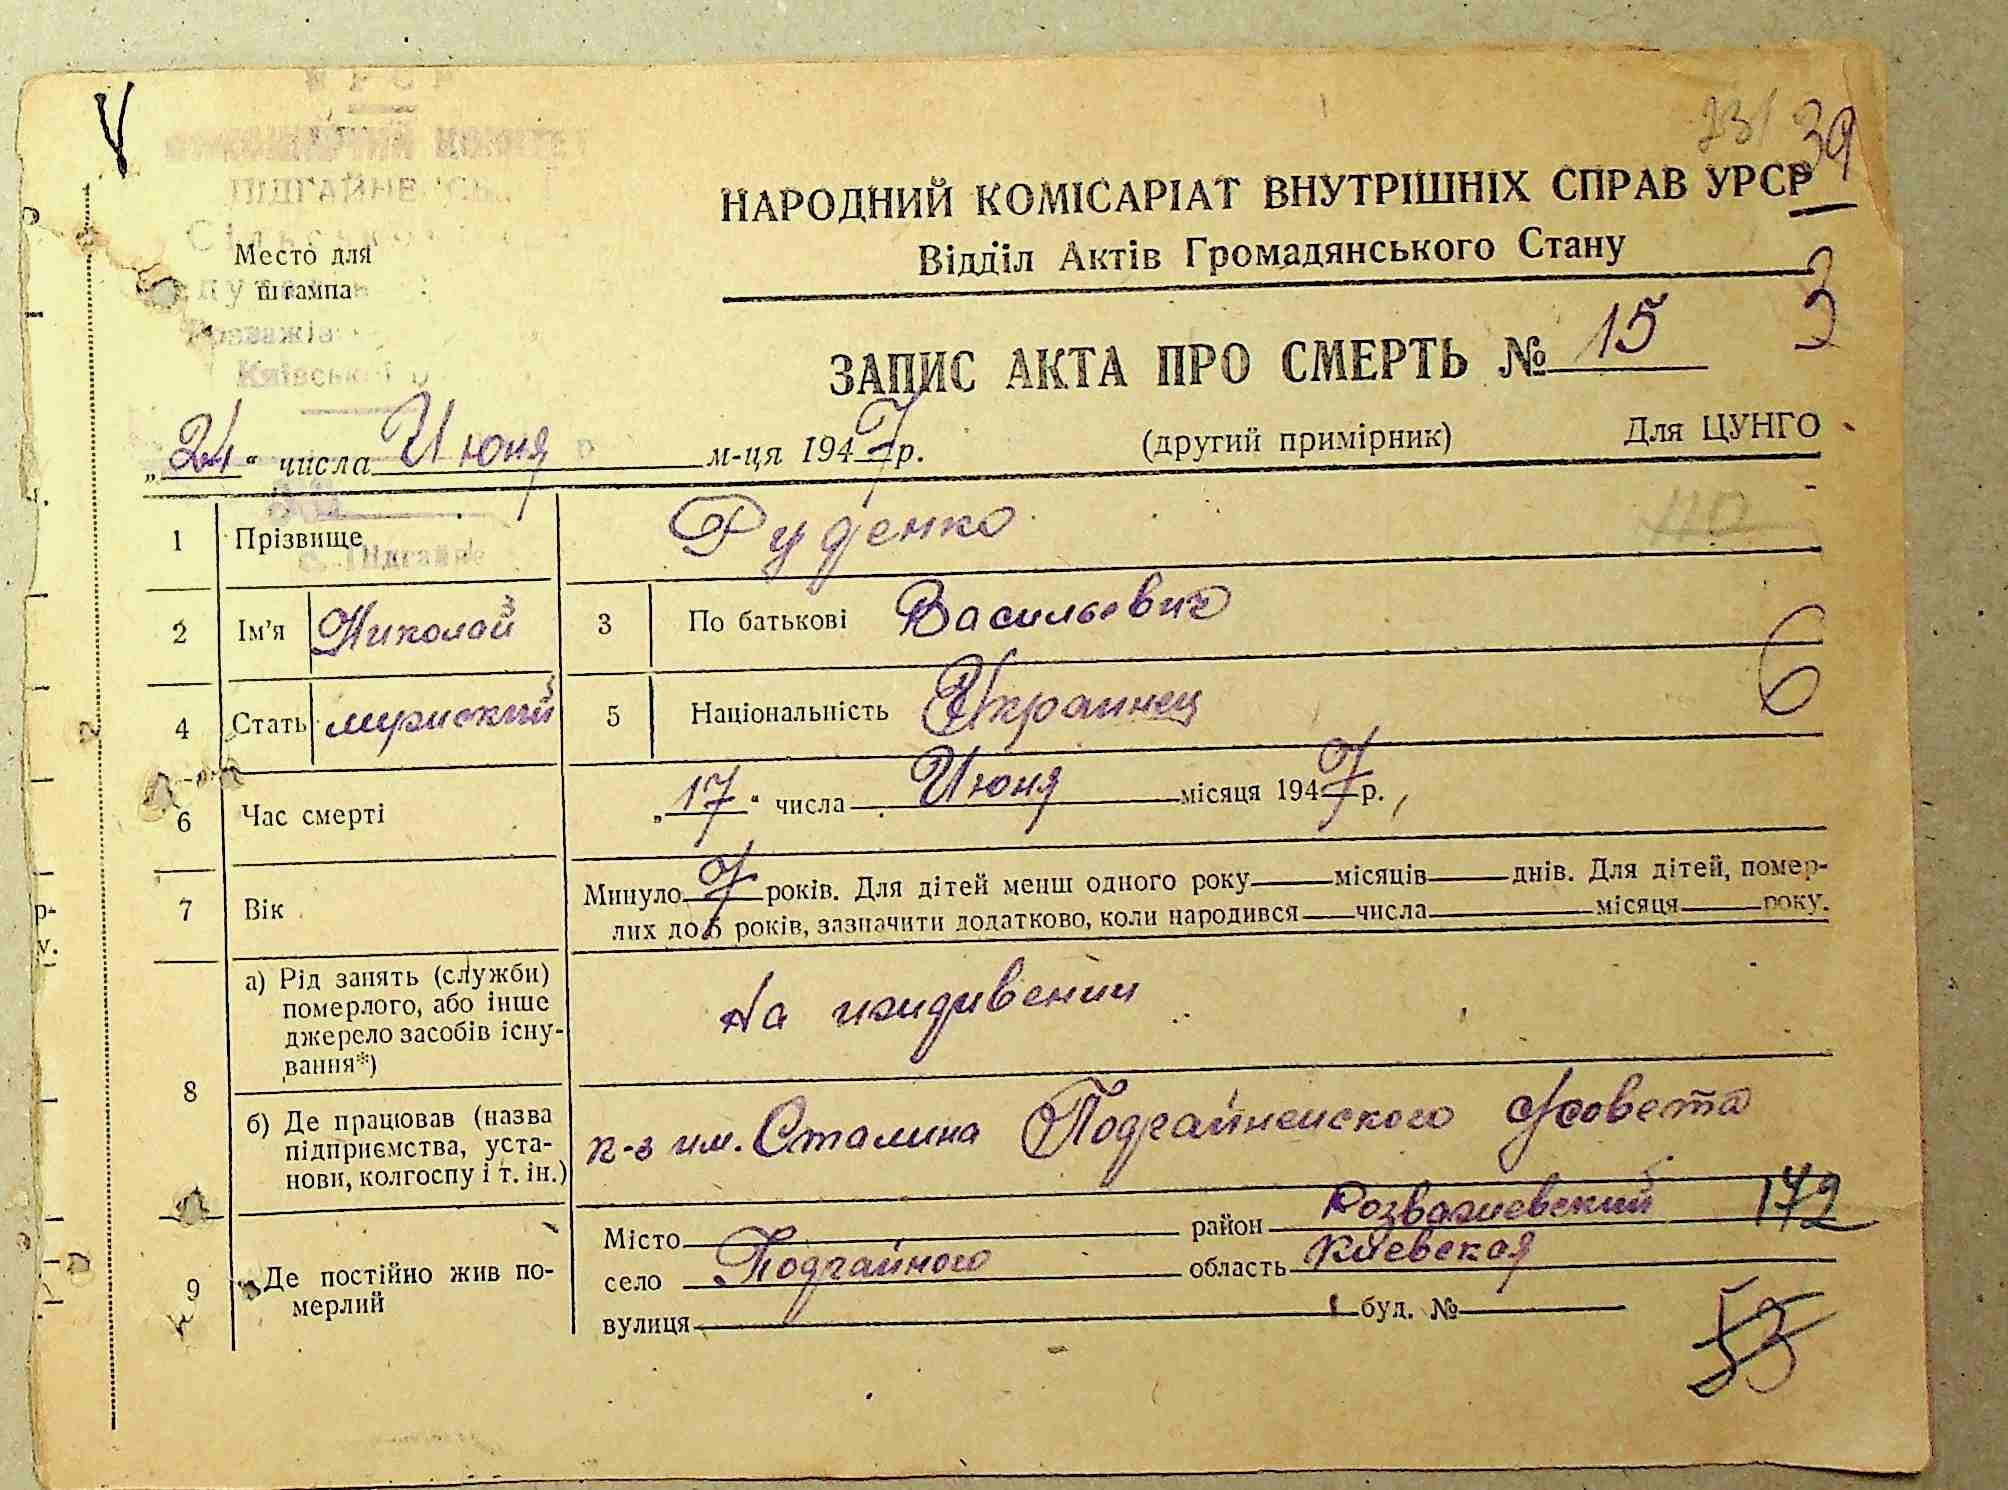 УРСР
ВИКОНАВЧИЙ КОМІТЕТ
ПІДГАЙНЕ
Сільсько
Место для
штампа
Розважів
Київськ
23/ 39
НАРОДНИЙ КОМІСАРІАТ ВНУТРІШНІХ СПРАВ УРСР
Відділ Актів Громадянського Стану
3
ЗАПИС АКТА ПРО СМЕРТЬ № 15
„24“ числа Июня м-ця 1947 р. (другий примірник) Для ЦУНГО
1 Прізвище Руденко
с. Підгайне
2 Ім'я Николай 3 По батькові Васильевич
6
4 Стать мужский 5 Національність Украинец
6 Час смерті „17“ числа Июня місяця 1947 р.
7 Вік Минуло 7 років. Для дітей менш одного року місяців днів. Для дітей, помер-
лих до 5 років, зазначити додатково, коли народився числа місяця року.
8 а) Рід занять (служби)
померлого, або інше
джерело засобів існу-
вання*)
На иждивении
б) Де працював (назва
підприємства, уста-
нови, колгоспу і т. ін.)
к-з им. Сталина Подгайненского с/совета
9 Де постійно жив по-
мерлий
Місто район Розважевский 172
село Подгайного область Киевская
вулиця буд. №
53